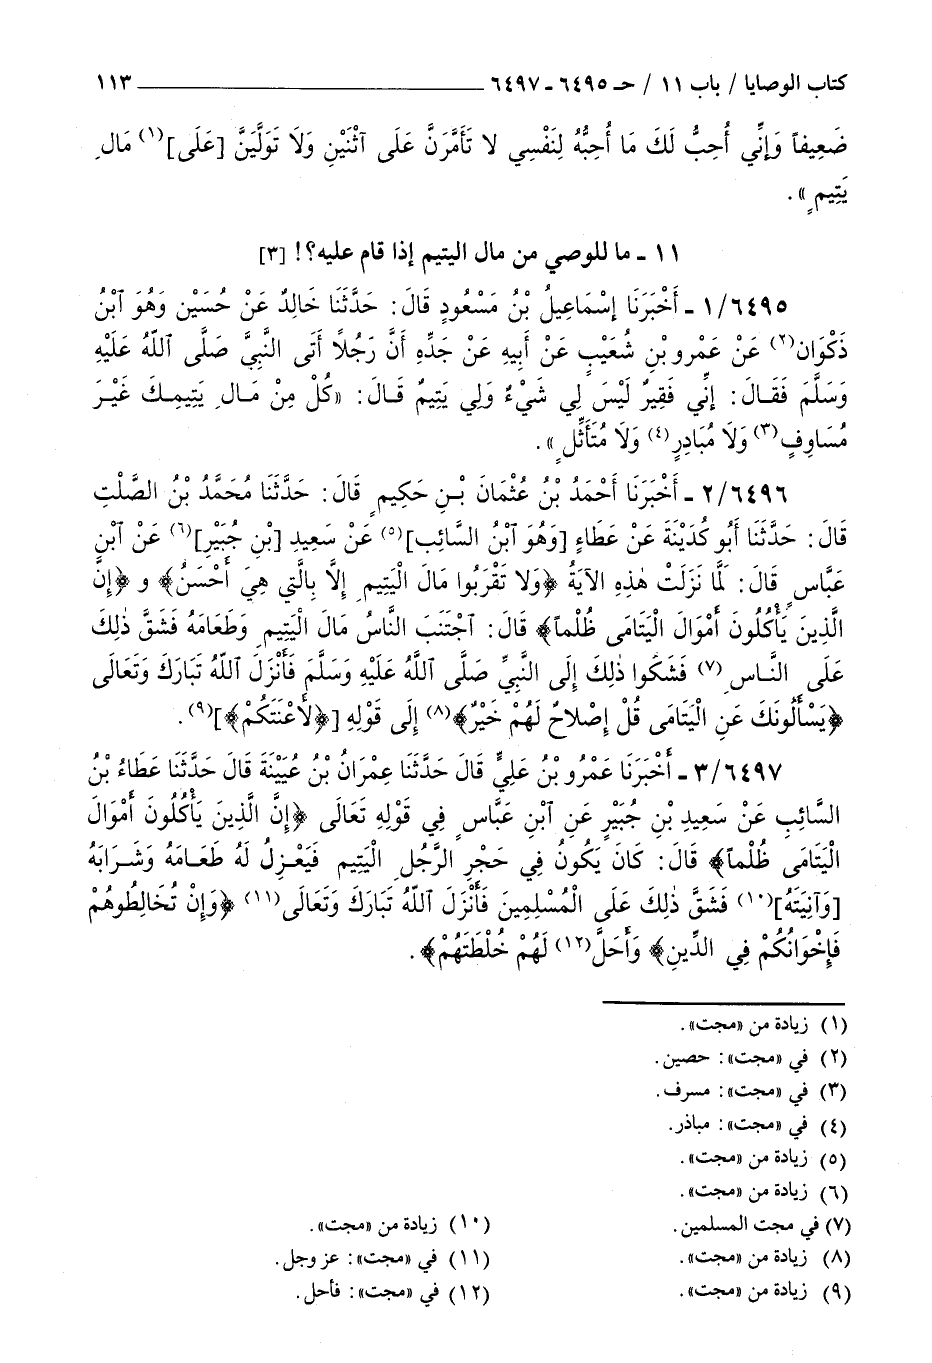 كتاب الوصايا / باب ١١ / حـ ٦٤٩٥ ـ ٦٤٩٧ ١١٣
ضَعِيفاً وَإِنِّي أُحِبُّ لَكَ مَا أُحِبُّهُ لِنَفْسِي لا تَأَمَّرَنَّ عَلَى ٱثْنَيْنِ وَلَا تَوَلَّيَنَّ [عَلَى](١) مَالِ
يَتِيمٍ».
١١ ـ ما للوصي من مال اليتيم إذا قام عليه؟! [٣]
١/٦٤٩٥ ـ أَخْبَرَنَا إِسْمَاعِيلُ بْنُ مَسْعُودٍ قَالَ: حَدَّثَنَا خَالِدٌ عَنْ حُسَيْنٍ وَهُوَ ٱبْنُ
ذَكْوَان(٢) عَنْ عَمْرِو بْنِ شُعَيْبٍ عَنْ أَبِيهِ عَنْ جَدِّهِ أَنَّ رَجُلاً أَتَى النَّبِيَّ صَلَّى ٱللَّهُ عَلَيْهِ
وَسَلَّمَ فَقَالَ: إِنِّي فَقِيرٌ لَيْسَ لِي شَيْءٌ وَلِي يَتِيمٌ قَالَ: «كُلْ مِنْ مَالِ يَتِيمِكَ غَيْرَ
مُسَاوِفٍ(٣) وَلَا مُبَادِرٍ(٤) وَلَا مُتَأَثِّلٍ».
٢/٦٤٩٦ ـ أَخْبَرَنَا أَحْمَدُ بْنُ عُثْمَانَ بْنِ حَكِيمٍ قَالَ: حَدَّثَنَا مُحَمَّدُ بْنُ الصَّلْتِ
قَالَ: حَدَّثَنَا أَبُو كُدَيْنَةَ عَنْ عَطَاءٍ [وَهُوَ ٱبْنُ السَّائِبِ](٥) عَنْ سَعِيدِ [بْنِ جُبَيْرٍ](٦) عَنْ ٱبْنِ
عَبَّاسٍ قَالَ: لَمَّا نَزَلَتْ هٰذِهِ الآيَةُ ﴿وَلَا تَقْرَبُوا مَالَ الْيَتِيمِ إِلَّا بِالَّتِي هِيَ أَحْسَنُ﴾ و ﴿إِنَّ
الَّذِينَ يَأْكُلُونَ أَمْوَالَ الْيَتَامَى ظُلْماً﴾ قَالَ: ٱجْتَنَبَ النَّاسُ مَالَ الْيَتِيمِ وَطَعَامَهُ فَشَقَّ ذٰلِكَ
عَلَى النَّاسِ(٧) فَشَكَوا ذٰلِكَ إِلَى النَّبِيِّ صَلَّى ٱللَّهُ عَلَيْهِ وَسَلَّمَ فَأَنْزَلَ ٱللَّهُ تَبَارَكَ وَتَعَالَى
﴿يَسْأَلُونَكَ عَنِ الْيَتَامَى قُلْ إِصْلَاحٌ لَهُمْ خَيْرٌ﴾(٨) إِلَى قَوْلِهِ [﴿لأَعْنَتَكُمْ﴾](٩).
٣/٦٤٩٧ ـ أَخْبَرَنَا عَمْرُو بْنُ عَلِيٍّ قَالَ حَدَّثَنَا عِمْرَانُ بْنُ عُيَيْنَةَ قَالَ حَدَّثَنَا عَطَاءُ بْنُ
السَّائِبِ عَنْ سَعِيدِ بْنِ جُبَيْرٍ عَنِ ٱبْنِ عَبَّاسٍ فِي قَوْلِهِ تَعَالَى ﴿إِنَّ الَّذِينَ يَأْكُلُونَ أَمْوَالَ
الْيَتَامَى ظُلْماً﴾ قَالَ: كَانَ يَكُونُ فِي حَجْرِ الرَّجُلِ الْيَتِيمِ فَيَعْزِلُ لَهُ طَعَامَهُ وَشَرَابَهُ
[وَآنِيَتَهُ](١٠) فَشَقَّ ذٰلِكَ عَلَى الْمُسْلِمِينَ فَأَنْزَلَ ٱللَّهُ تَبَارَكَ وَتَعَالَى(١١) ﴿وَإِنْ تُخَالِطُوهُمْ
فَإِخْوَانُكُمْ فِي الدِّينِ﴾ وَأَحَلَّ(١٢) لَهُمْ خُلْطَتَهُمْ﴾.
(١) زيادة من «مجت».
(٢) في «مجت»: حصين.
(٣) في «مجت»: مسرف.
(٤) في «مجت»: مباذر.
(٥) زيادة من «مجت».
(٦) زيادة من «مجت».
(٧) في مجت المسلمين.
(٨) زيادة من «مجت».
(٩) زيادة من «مجت».
(١٠) زيادة من «مجت».
(١١) في «مجت»: عز وجل.
(١٢) في «مجت»: فأحل.